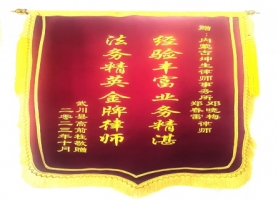 赠：内蒙古帅生律师事务所
邓晓梅
郑春雷
律师
经验丰富业务精湛
法务精英金牌律师
武川县高前柱敬赠
二零二三年十月